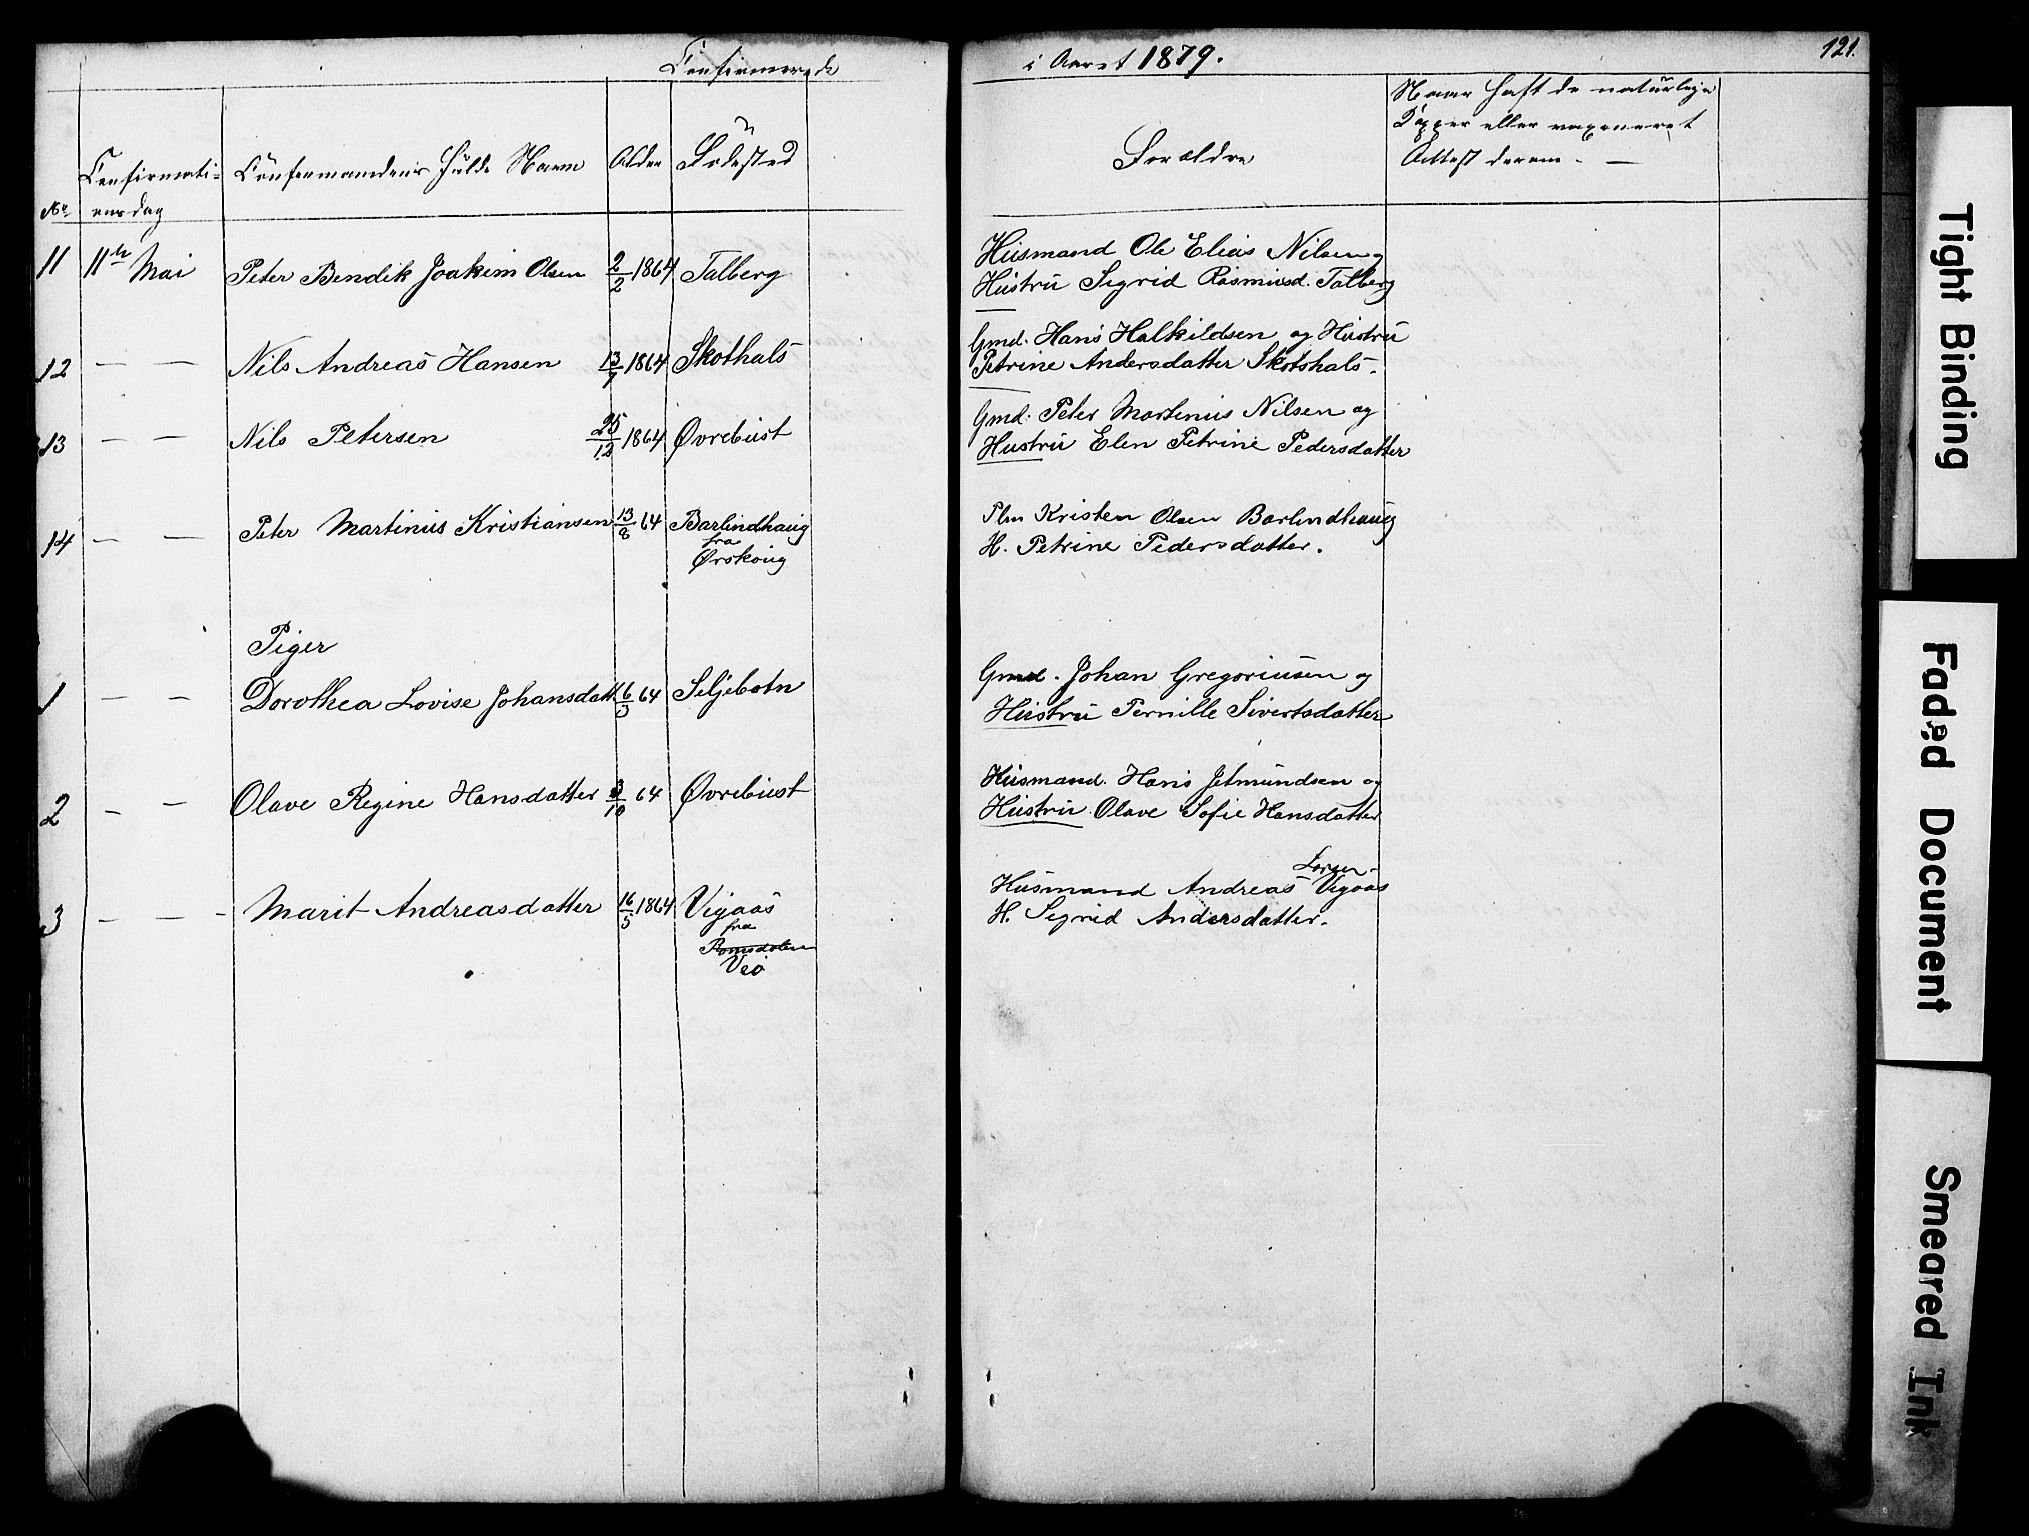 Confirmerede i Aaret 1879.
121.
No
Confirmati=
onsdag
Confirmandens fulde Navn
Alder
Fødested
Forældre
Naar haft de naturlige
Kopper eller vaxeneret
Attest derom. —
11 11te Mai Peter Bendik Joakim Olsen 2/2 1864 Talberg
Husmand Ole Elias Nilsen og
Hustru Sigrid Rasmusd. Talberg
12 — — Nils Andreas Hansen 13/7 1864 Skothals
Gmd. Hans Halkildsen og Hustru
Petrine Andersdatter Skotshals.
13 — — Nils Petersen 25/12 1864 Øvrebust
Gmd. Peter Martinus Nilsen og
Hustru Elen Petrine Pedersdatter
14 — — Peter Martinus Kristiansen 13/8 64 Barlindhaug
fra
Ørskoug
Plm Kristen Olsen Barlindhaug
H. Petrine Pedersdatter.
Piger
1 — — Dorothea Lovise Johansdatt 6/5 64 Seljebotn
Gmd. Johan Gregoriusen og
Hustru Pernille Sivertsdatter
2 — — Olave Regine Hansdatter 3/10 64 Øvrebust
Husmand. Hans Jetmundsen og
Hustru Olave Sofie Hansdatter
3 — — - Marit Andreasdatter 16/5 1864 Vigaas
fra
Romsdalen
Veø
Larsen
Husmand Andreas Vigaas
H. Sigrid Andersdatter.
Tight Binding
Faded Document
Smeared Ink